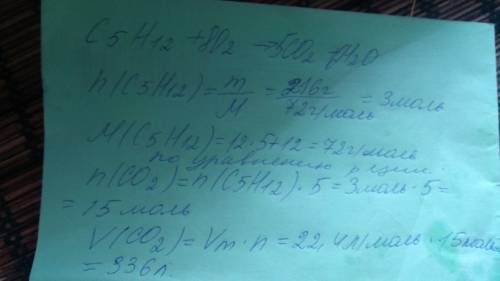 C5H12 + 8O2 → 5CO2 + 6H2O
n(C5H12) = m/M = 216г/72г/моль = 3моль
M(C5H12) = 12·5+12 = 72г/моль
по уравнению р-ции
n(CO2) = n(C5H12)·5 = 3моль·5 =
= 15 моль
V(CO2) = Vm·n = 22,4л/моль·15моль=
= 336л.